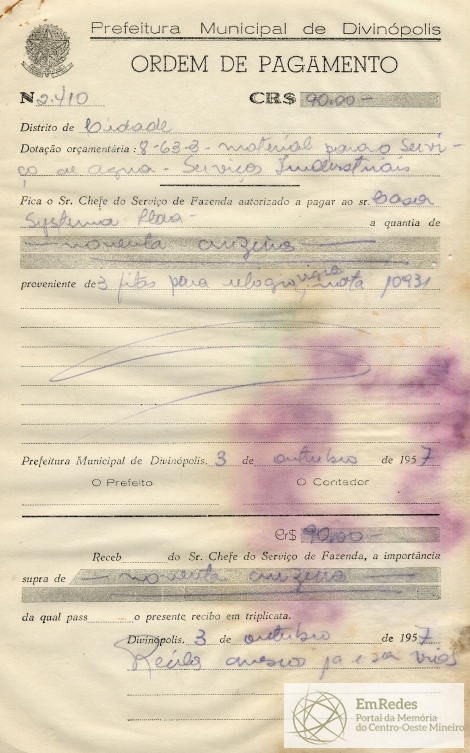 Prefeitura Municipal de Divinópolis
ORDEM DE PAGAMENTO
N 2.410 CR$ 90,00 -
Distrito de Cidade
Dotação orçamentária: 8-63-3 - material para o Servi-
ço de agua - Serviços Industriais
Fica o Sr. Chefe do Serviço de Fazenda autorizado a pagar ao sr. Casa
Systema a quantia de
— noventa cruzeiros —
proveniente de 3 fitas para relogio vigia, nota 10931
Prefeitura Municipal de Divinópolis, 3 de outubro de 1957
O Prefeito O Contador
Cr$ 90,00 -
Receb do Sr. Chefe do Serviço de Fazenda, a importância
supra de — noventa cruzeiros —
da qual pass o presente recibo em triplicata.
Divinópolis, 3 de outubro de 1957
Recibo anexo
EmRedes
Portal da Memória
do Centro-Oeste Mineiro